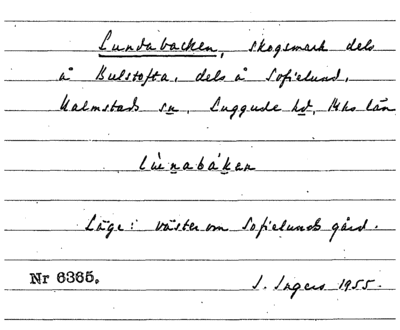 Lundabacken, skogsmark dels
å Bulstofta, dels å Sofielund,
Halmstads sn, Luggude hd, Mhs län
lùnabákan
Läge: väster om Sofielunds gård.
Nr 6365.
S. Ingers 1955.